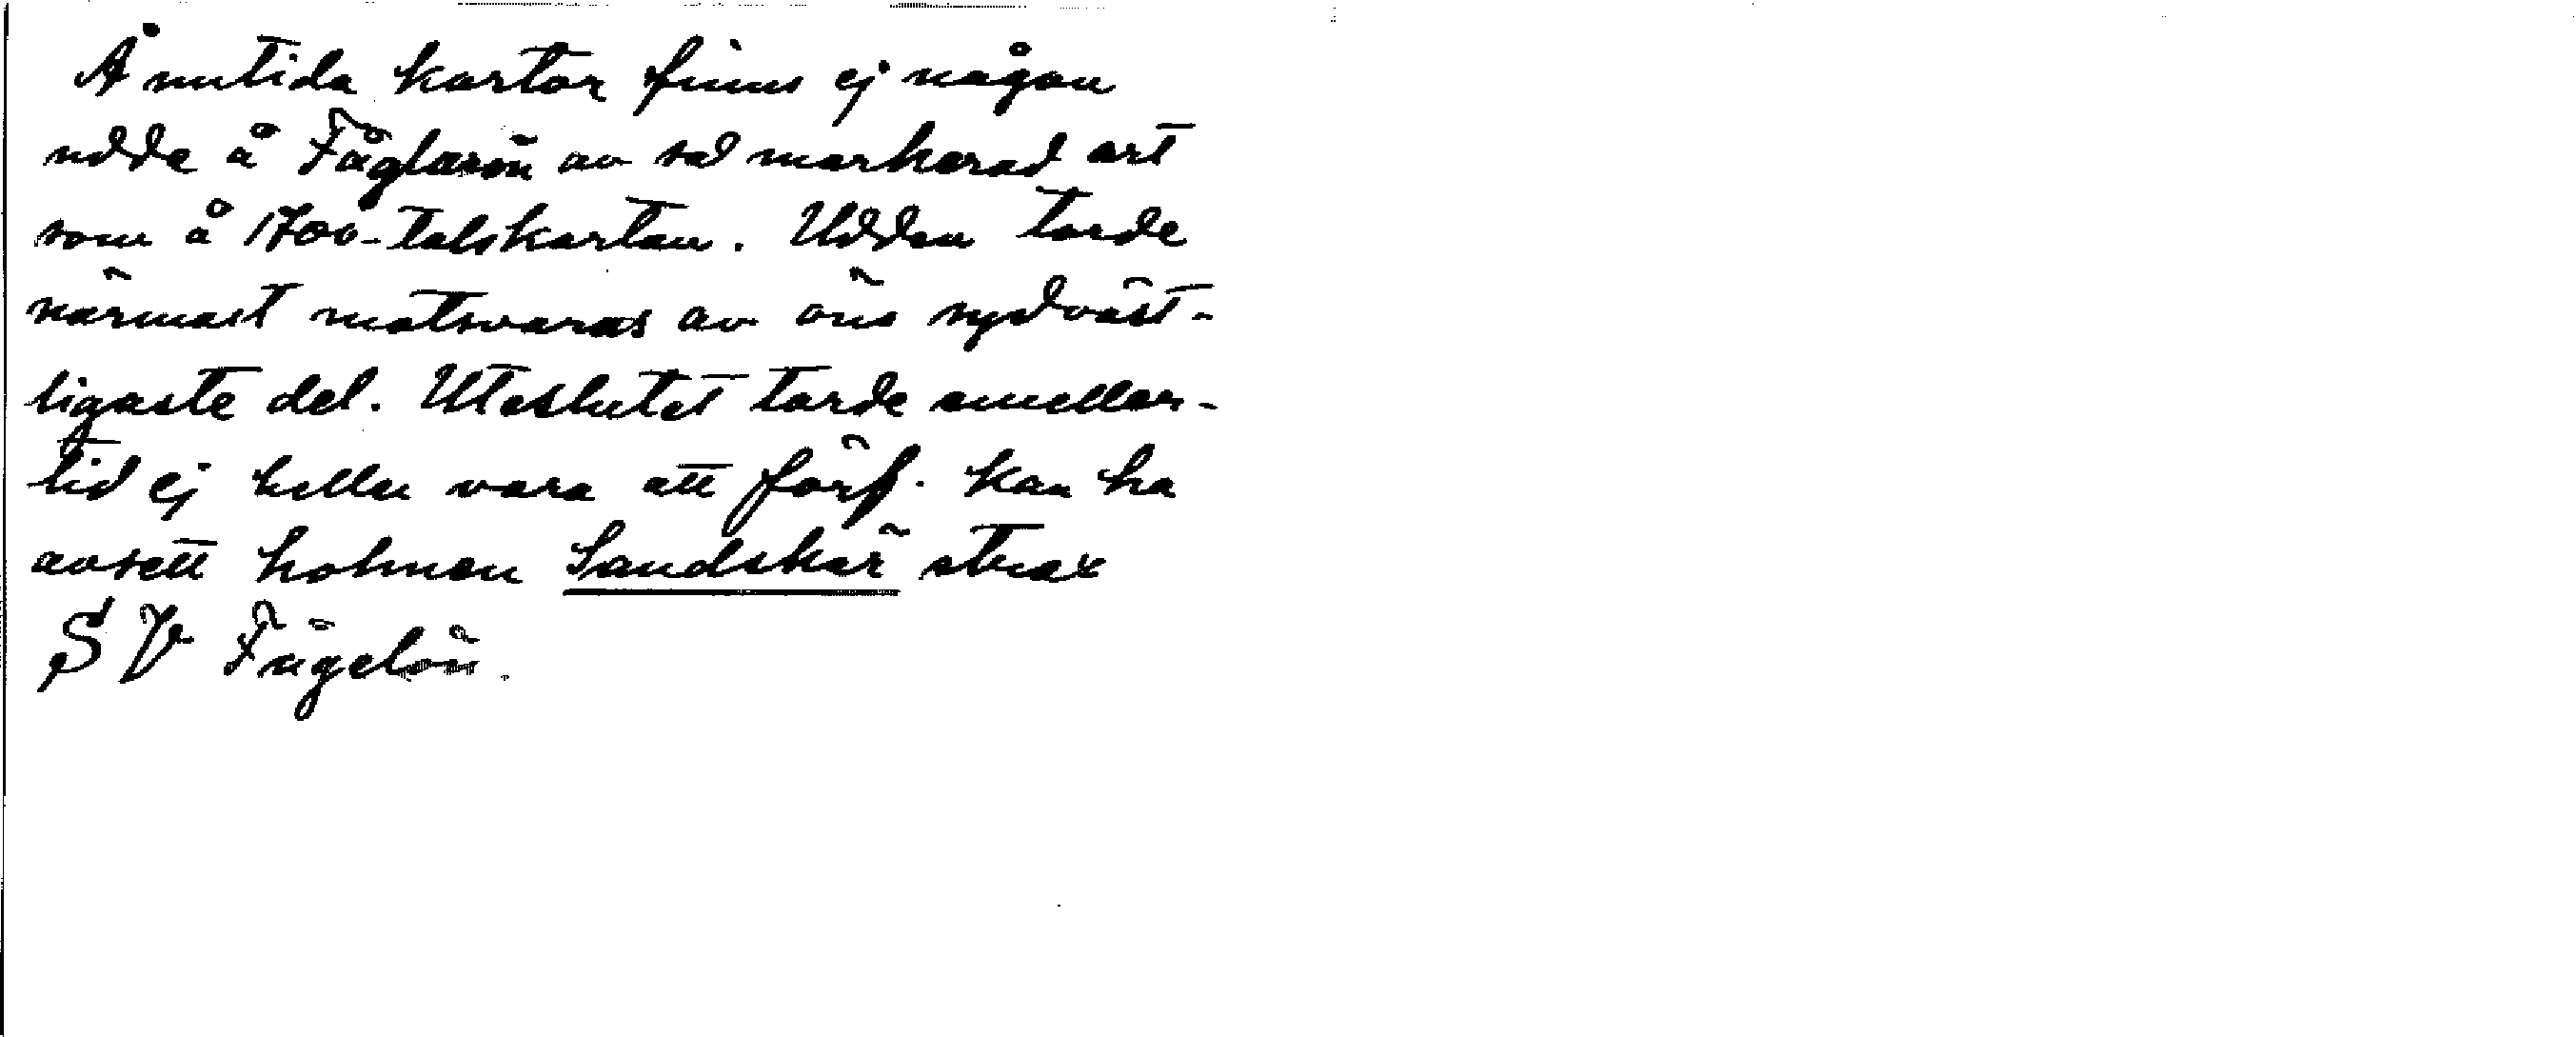 Å nutida kartor finns ej någon
udde å Fågelsön av så markerad art
som å 1700-talskartan. Udden torde
närmast motsvaras av öns sydväst-
ligaste del. Uteslutet torde emeller-
tid ej heller vara att förf. kan ha
avsett holmen Sandskär strax
SV Fågelön.